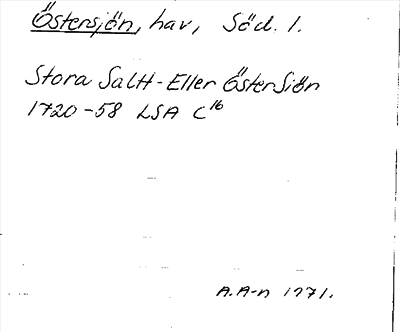 Östersjön, hav, Söd. l.
Stora Saltt-Eller ÖsterSiön
1720-58 LSA C16
A.A-n 1971.